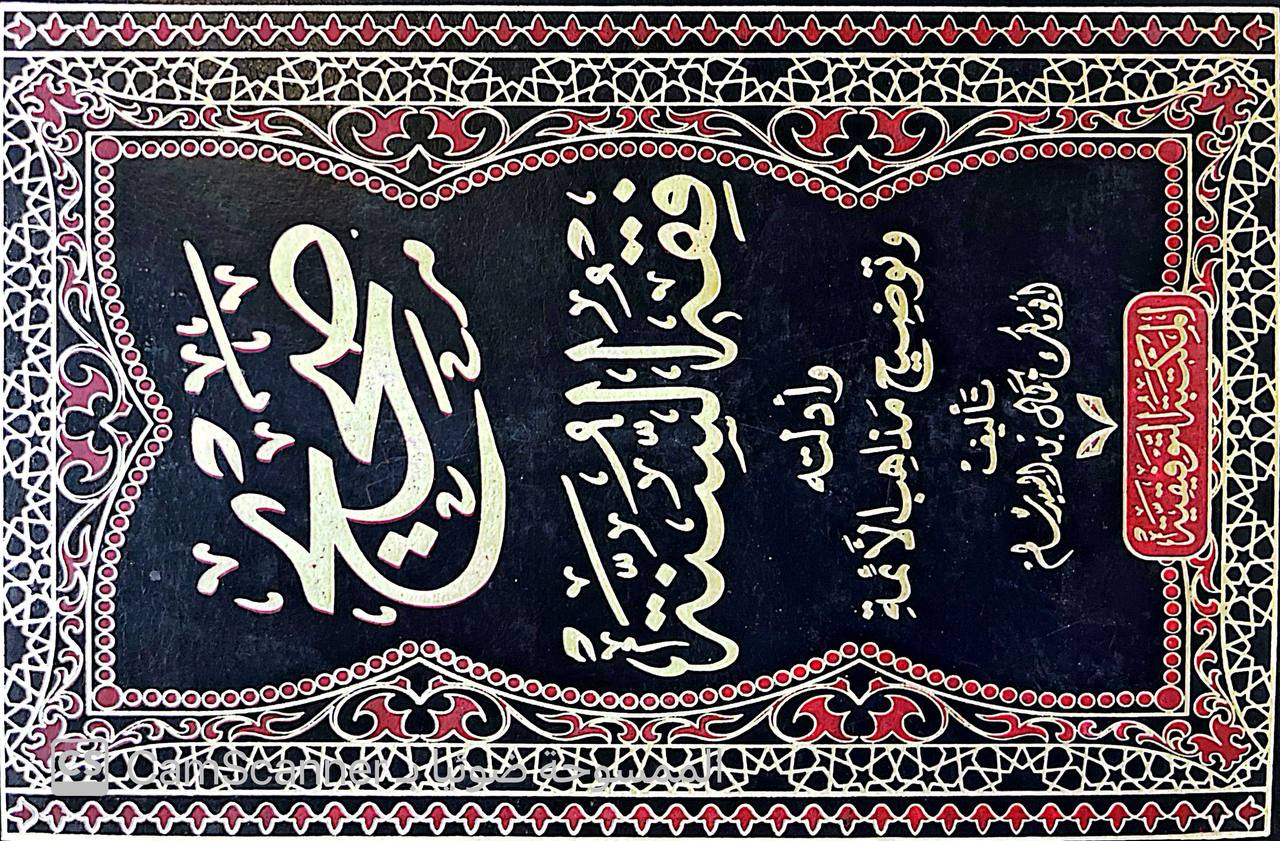 صحيح
فقه السنة
وأدلته
وتوضيح مذاهب الأئمة
تأليف
أبو مالك كمال بن السيد سالم
المكتبة التوفيقية
الممسوحة ضوئيا بـ CamScanner
CS